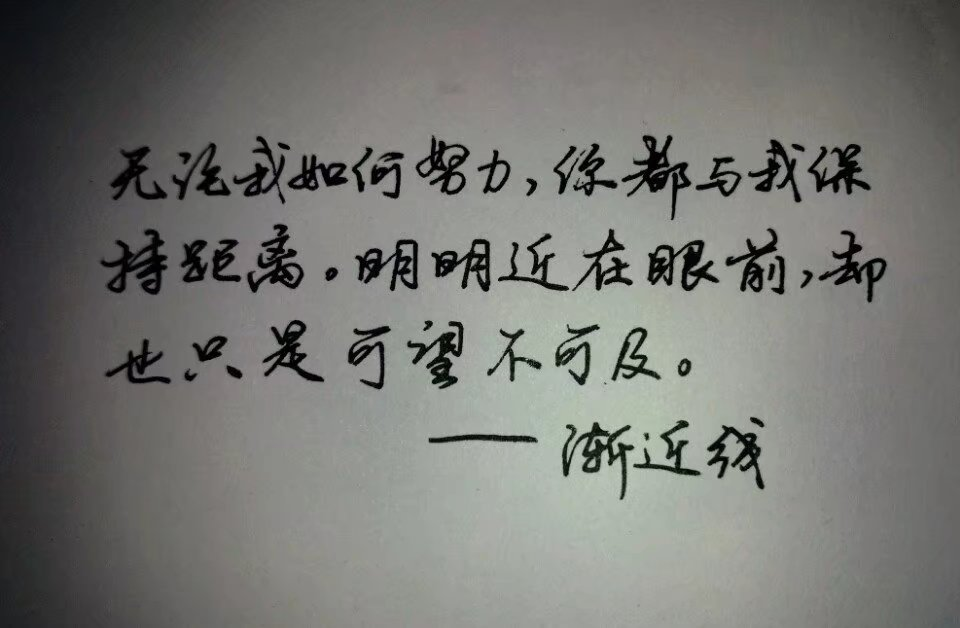 无论我如何努力，你都与我保
持距离。明明近在眼前，却
也只是可望不可及。
——渐近线